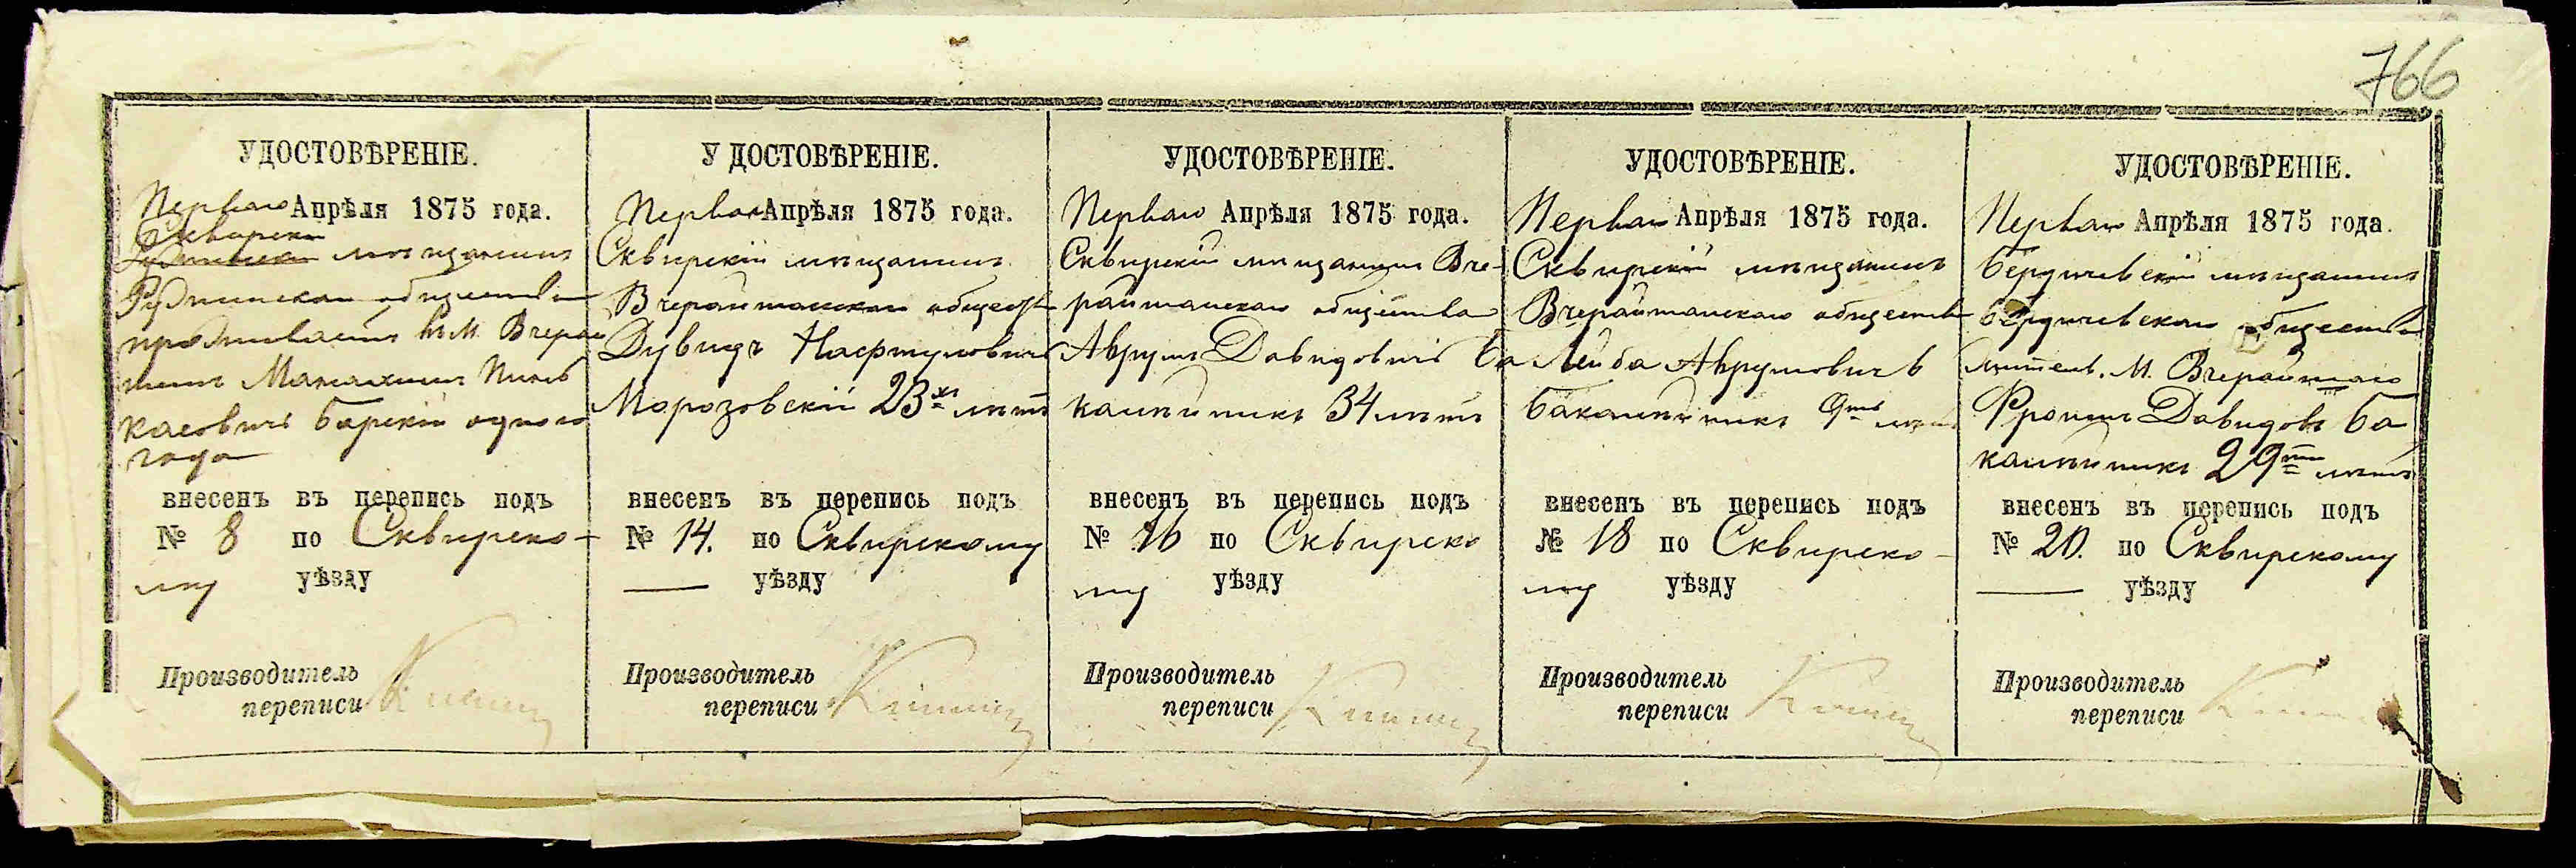 766
УДОСТОВѢРЕНІЕ.
Перваго Апрѣля 1875 года.
Сквирскій
мѣщанинъ
Рудинскаго общества
проживаетъ въ М. Вчерай
шемъ Пинь
касовичъ Барскій одного
года
внесенъ въ перепись подъ
№ 8 по Сквирско-
му уѣзду
Производитель
переписи
УДОСТОВѢРЕНІЕ.
Перваго Апрѣля 1875 года.
Сквирскій мѣщанинъ
Вчерайшанскаго общества
Дувидъ Нафтуловичъ
Морозовскій 23хъ лѣтъ
внесенъ въ перепись подъ
№ 14. по Сквирскому
— уѣзду
Производитель
переписи
УДОСТОВѢРЕНІЕ.
Перваго Апрѣля 1875 года.
Сквирскій мѣщанинъ Вче-
райшанскаго общества
Аврумъ Давидовичъ Ба
калейникъ 34 лѣтъ
внесенъ въ перепись подъ
№ 16 по Сквирско
му уѣзду
Производитель
переписи
УДОСТОВѢРЕНІЕ.
Перваго Апрѣля 1875 года.
Сквирскій мѣщанинъ
Вчерайшанскаго общества
Лейба Аврумовичъ
Бакалейникъ 9ть лѣтъ
внесенъ въ перепись подъ
№ 18 по Сквирско-
му уѣзду
Производитель
переписи
УДОСТОВѢРЕНІЕ.
Перваго Апрѣля 1875 года.
Бердичевскій мѣщанинъ
Бердичевскаго общества
житель. М. Вчерайшаго
Фроимъ Давидовъ Ба
калейникъ 29ти лѣтъ
внесенъ въ перепись подъ
№ 20. по Сквирскому
— уѣзду
Производитель
переписи